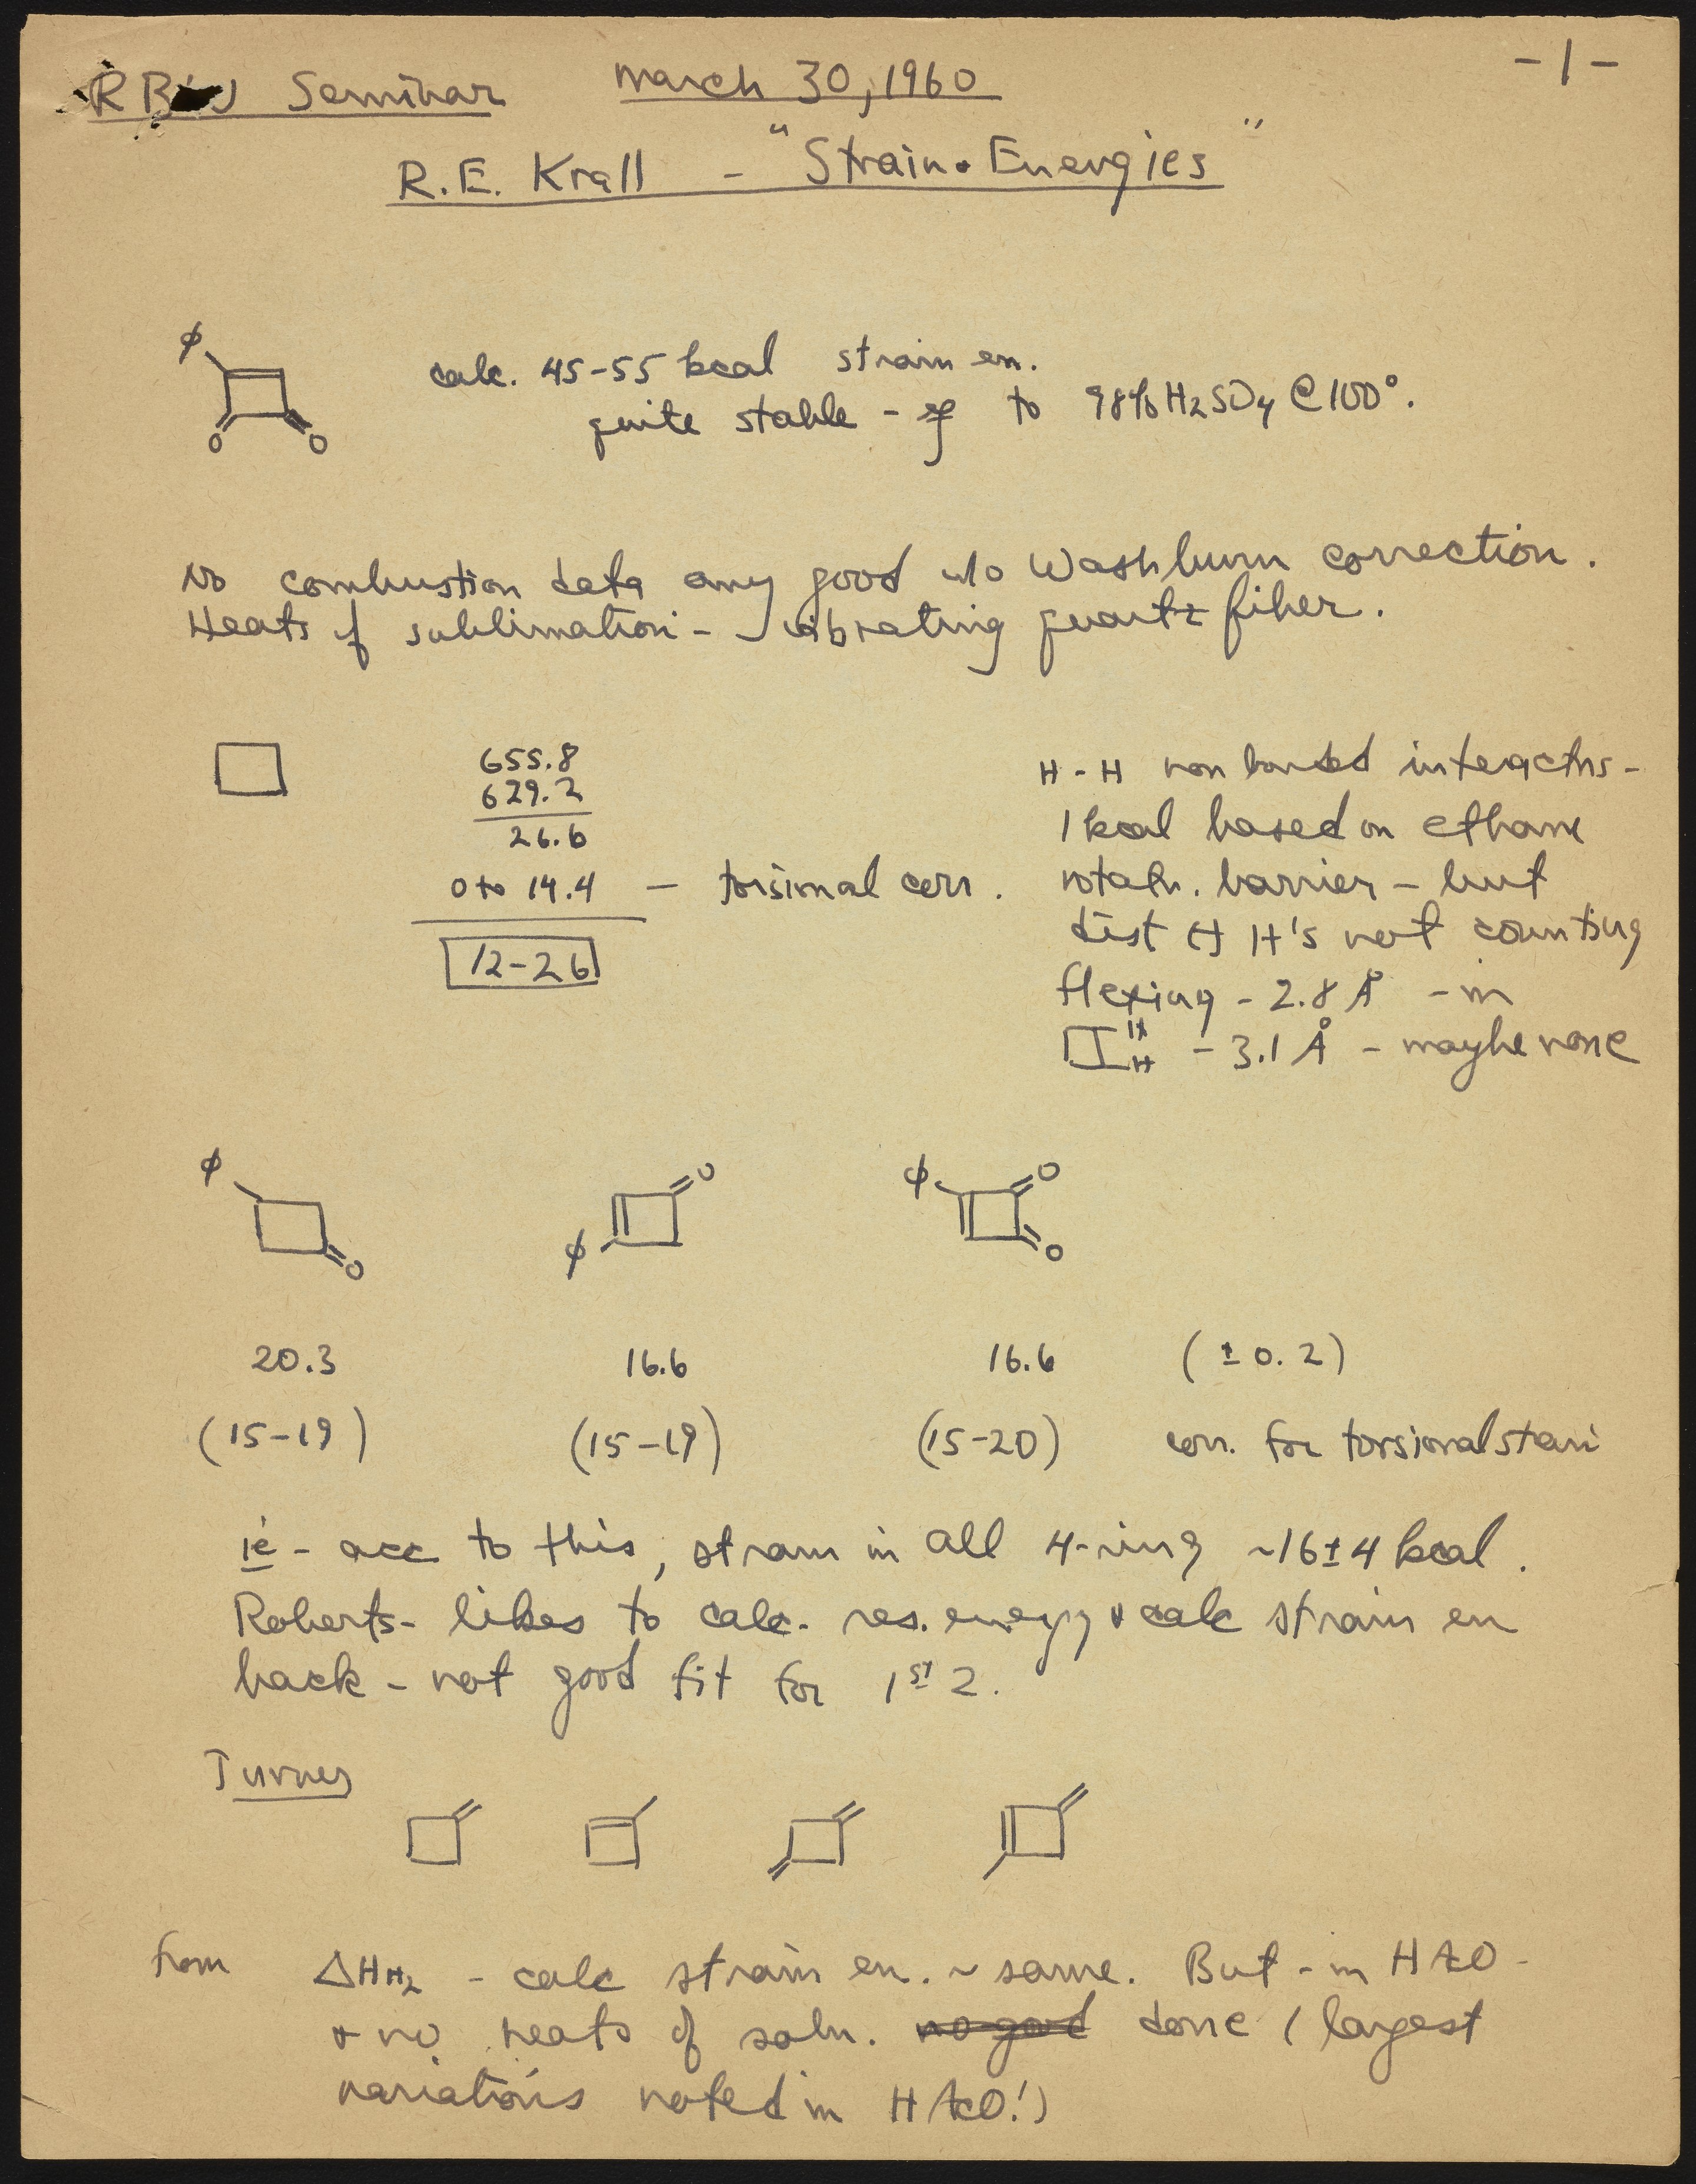 - 1 -
RBW Seminar March 30, 1960
R.E. Krall - "Strain Energies"
φ
calc. 45-55 kcal strain en.
quite stable - eg to 98% H2SO4 @ 100°.
O O
No combustion data any good w/o Washburn correction.
Heats of sublimation - vibrating quartz fiber.
655.8
629.2
26.6
0 to 14.4 — torsional corr.
12-26
H-H non bonded interactns -
1 kcal based on ethane
rotatn. barrier - but
dist H H's not counting
flexing - 2.8 Å - in
H
H - 3.1 Å - maybe none
φ O φ O φ O O
20.3 16.6 16.6 (± 0.2)
(15-19) (15-19) (15-20) corr. for torsional stain
ie - acc to this, strain in all 4-ring ~16±4 kcal.
Roberts - likes to calc. res. energy & calc strain en
back - not good fit for 1st 2.
Turner
from ΔHH2 - calc strain en. ~ same. But - in HAcO -
& no heats of soln. no good done (largest
variations noted in HAcO!)